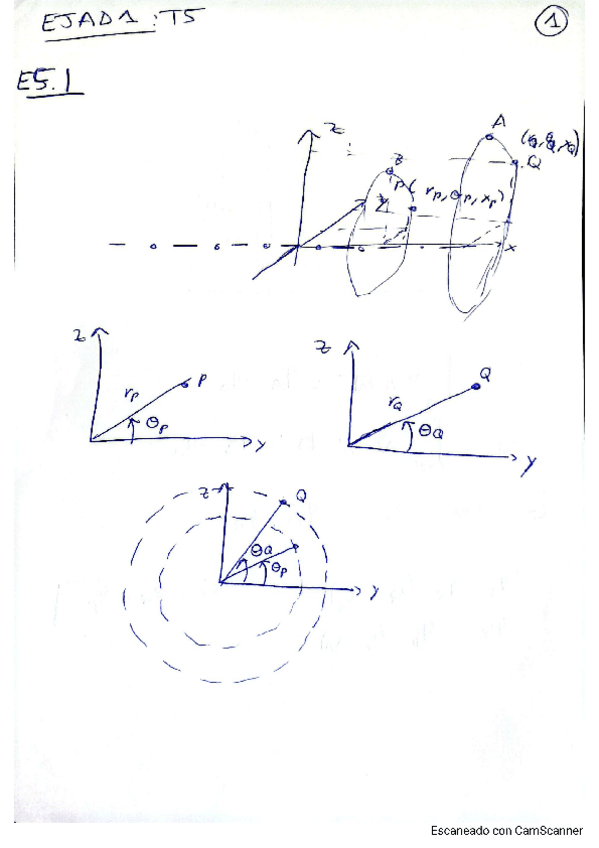 EJAD1: T5
1
E5.1
z
A
(r_Q, θ_Q, x_Q)
B
Q
P(r_P, θ_P, x_P)
y
x
z
z
P
Q
r_P
r_Q
θ_P
θ_Q
y
y
z
Q
θ_Q
θ_P
y
Escaneado con CamScanner